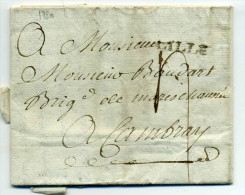 1780
A Monsieur LILLE
Monsieur Boudart
Brig.er de marechaussée
A Cambray